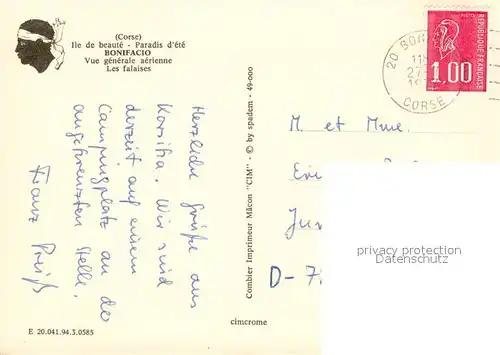 (Corse)
Ile de beauté - Paradis d'été
BONIFACIO
Vue générale aérienne
Les falaises
Herzliche Grüße aus
Korsika. Wir sind
derzeit auf einem
Campingplatz an der
angekreuzten Stelle.
Franz
E 20.041.94.3.0585
Combier Imprimeur Mâcon "CIM" - © by spadem - 49-000
cimcrome
20
CORSE
POSTES
REPUBLIQUE FRANÇAISE
1,00
M. et Mme.
D-7
privacy protection
Datenschutz